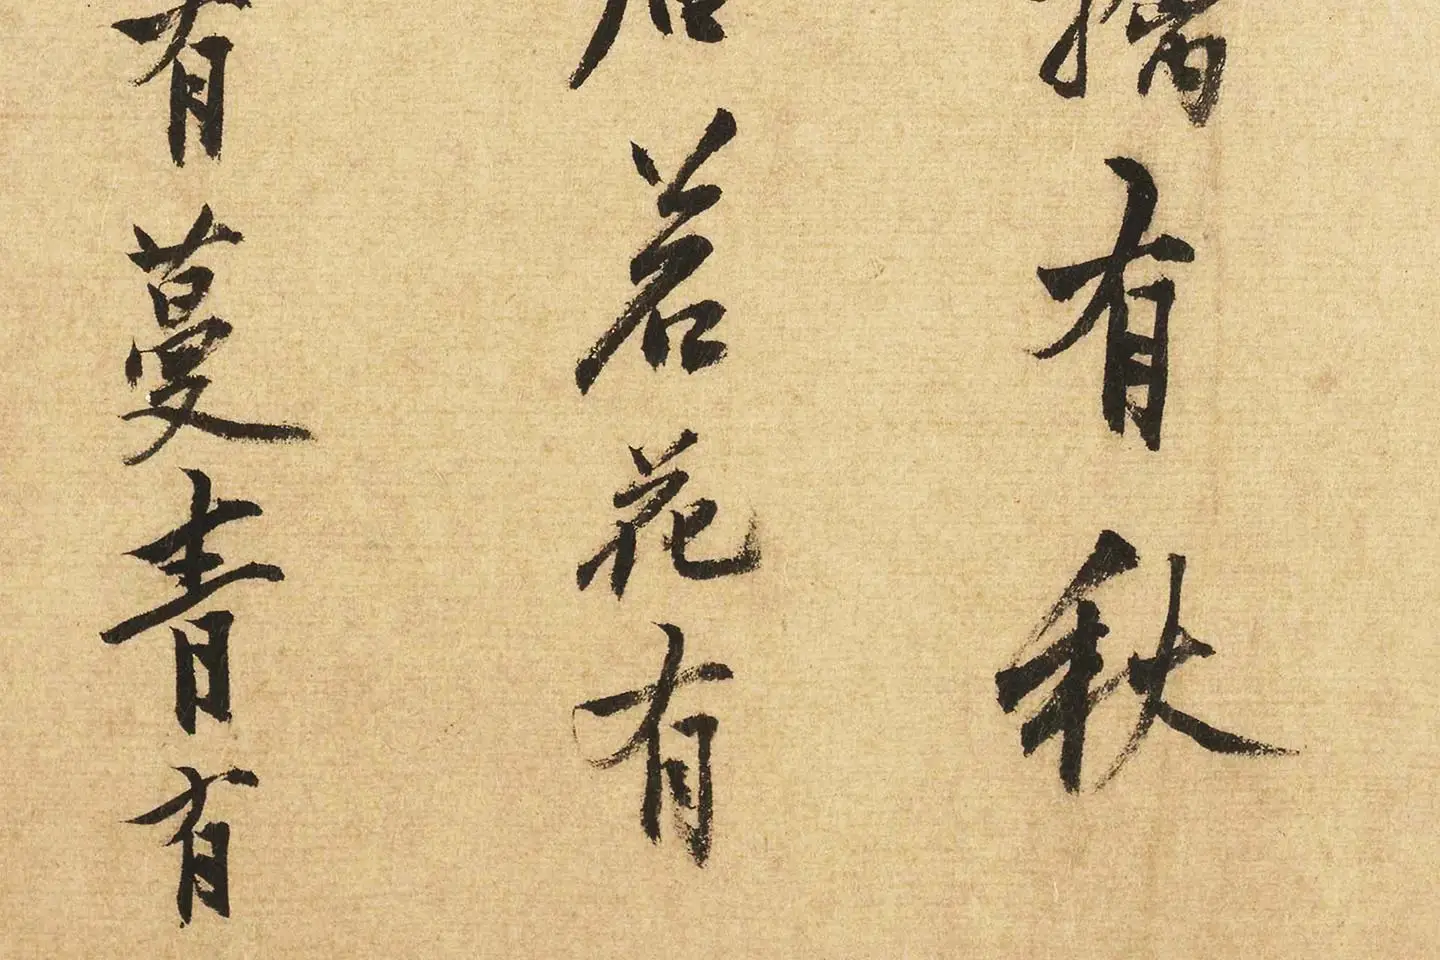 有秋
若花有
有蔓青有